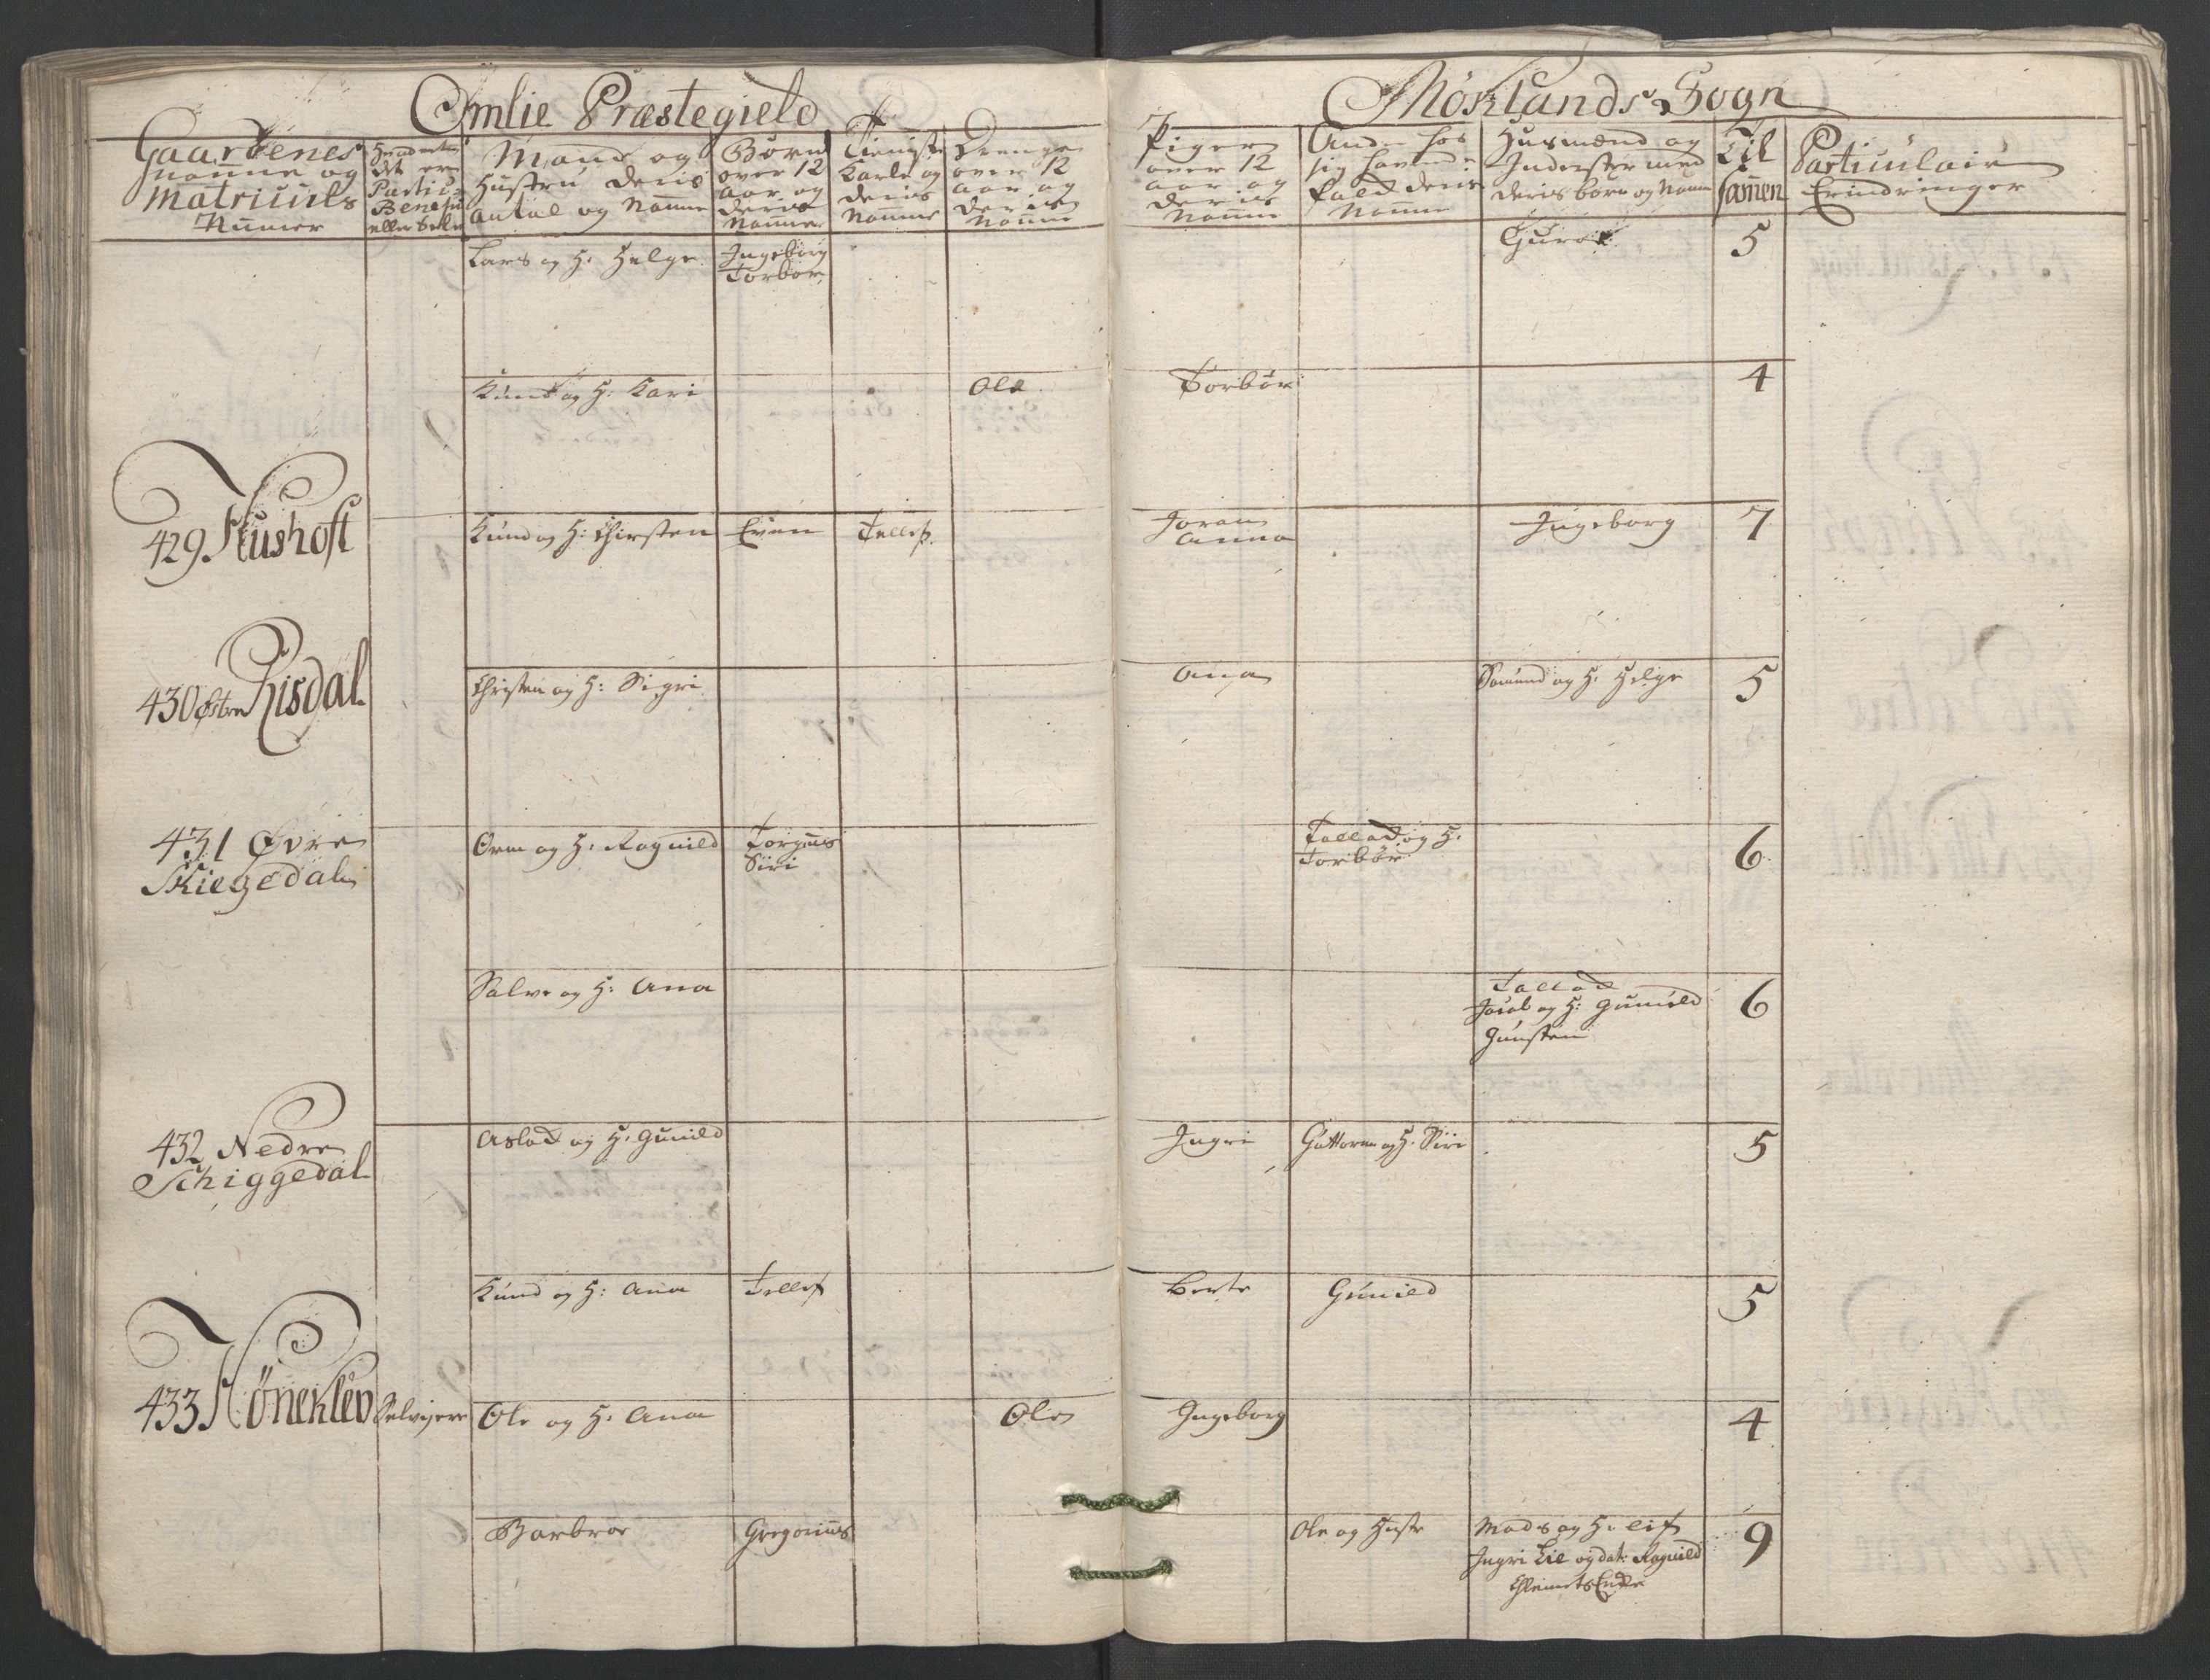 Omlie Præstegield
Møklands Sogn
Gaardenes
Naune og
Matriculs
Numer
det er
Partic:
Benefic
eller
Mand og
Hustru deris
antal og Naune
Børn
over 12
aar og
deris
Naune
Tieniste
Karle og
deris
Naune
Drenge
over 12
aar og
deris
Naune
Piger
over 12
aar og
deris
Naune
Ande hos
sig havende
Fald deris
Naune
Husmænd og
Inderster med
deris børn og Naune
Til
samen
Particulair
Erindringer
Lars og H: Helge
Ingeborg
Torbor
Guroe
5
Knud og H: Kari
Ole
Torbør
4
429 Hushoft
Knud og H: Chirsten
Even
Tellef
Joran
Anna
Ingeborg
7
430 Østre Risdal
Christen og H: Sigri
Ana
Samund og H: Helge
5
431 Øvre
Skiegedal
Orm og H: Ragnild
Torgius
Siri
Tallad og H:
Torbør
6
Salve og H: Ana
Tallad
Jacob og H: Gunild
Gunsten
6
432 Nedre
Schiggedal
Aslad og H: Gunild
Ingri
Guttorm og H: Siri
5
Knud og H: Ana
Tellef
Berte
Gunild
5
433 Høneklev
Selveyere
Ole og H: Ana
Ole
Ingeborg
4
Barbroe
Gregorius
Ole og Hustr
Mads og H: Lif
Ingri Lie og dat: Ragnild
Clemet Endre
9